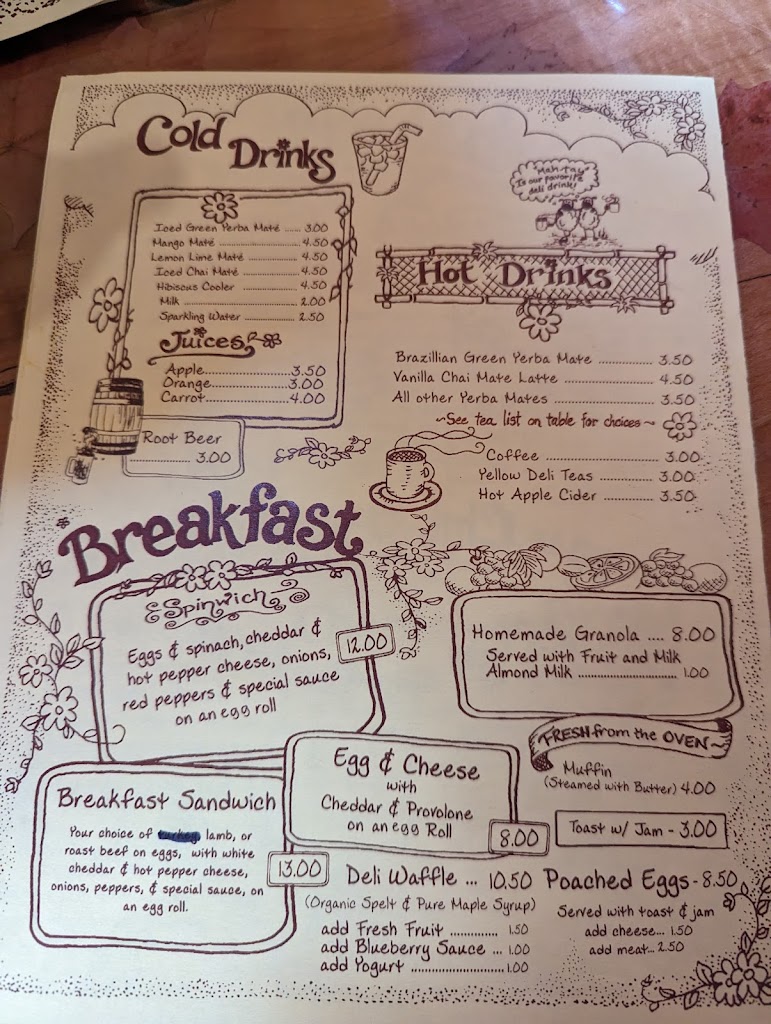 Cold Drinks
Iced Green Yerba Maté ...... 3.00
Mango Maté ........................ 4.50
Lemon Lime Maté ................ 4.50
Iced Chai Maté .................... 4.50
Hibiscus Cooler ................... 4.50
Milk ................................... 2.00
Sparkling Water .................. 2.50
Juices
Apple........................3.50
Orange......................3.00
Carrot.......................4.00
Root Beer
.................. 3.00
"Mah-tay"
Is our favorite
deli drink!
Hot Drinks
Brazillian Green Yerba Mate ............ 3.50
Vanilla Chai Mate Latte .................. 4.50
All other Yerba Mates ..................... 3.50
~See tea list on table for choices~
Coffee ....................... 3.00
Yellow Deli Teas ........... 3.00
Hot Apple Cider ............ 3.50
Breakfast
Spinwich
Eggs & spinach, cheddar &
hot pepper cheese, onions,
red peppers & special sauce
on an egg roll
12.00
Homemade Granola .... 8.00
Served with Fruit and Milk
Almond Milk ............................. 1.00
Egg & Cheese
with
Cheddar & Provolone
on an egg Roll
8.00
FRESH from the OVEN~
Muffin
(Steamed with Butter) 4.00
Toast w/ Jam - 3.00
Breakfast Sandwich
Your choice of turkey, lamb, or
roast beef on eggs, with white
cheddar & hot pepper cheese,
onions, peppers, & special sauce, on
an egg roll.
13.00
Deli Waffle ... 10.50
(Organic Spelt & Pure Maple Syrup)
add Fresh Fruit ............. 1.50
add Blueberry Sauce ... 1.00
add Yogurt .........................1.00
Poached Eggs - 8.50
Served with toast & jam
add cheese... 1.50
add meat... 2.50